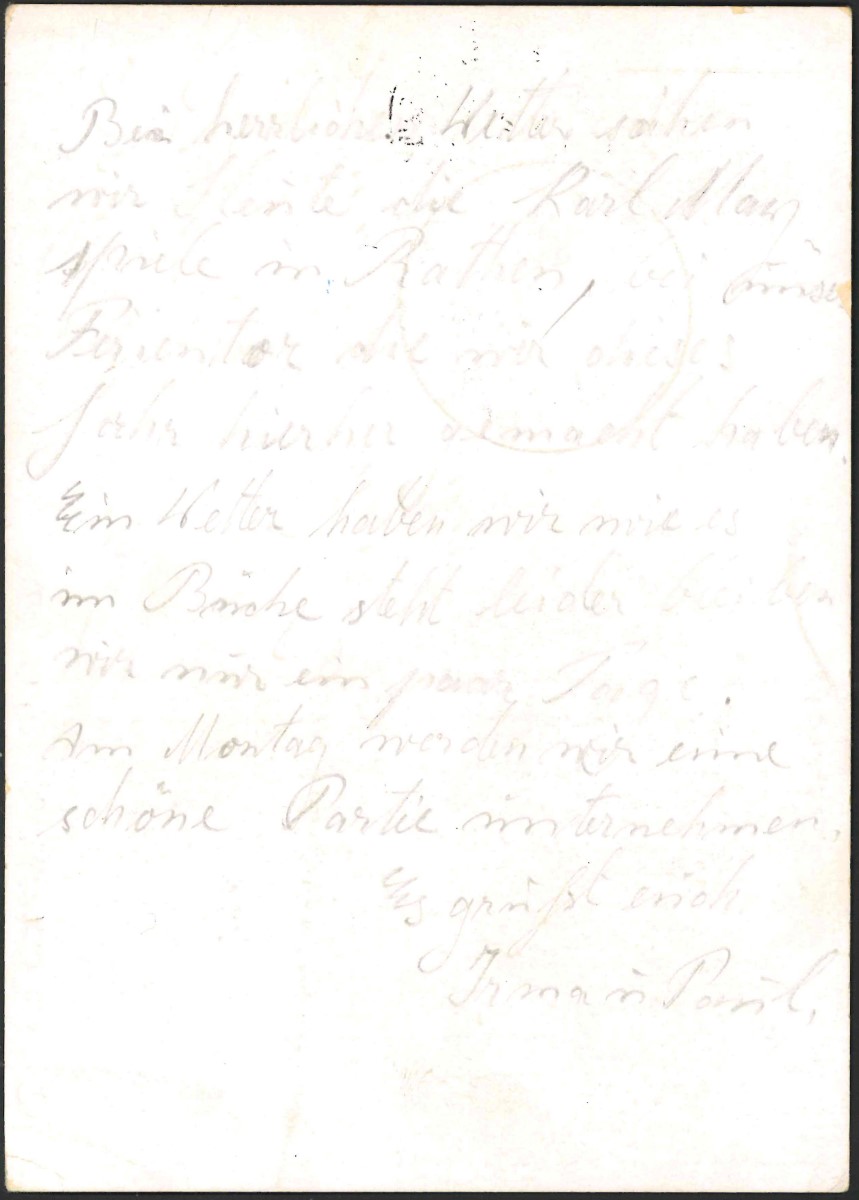 Bei herrlichen Wetter sahen
wir Heute die Karl May
spiele in Rathen, bei unser
Ferientor die wir dieses
Jahr hierher gemacht haben.
Ein Wetter haben wir wie es
im Buche steht leider bleiben
wir nur ein paar Tage.
Am Montag werden wir eine
schöne Partie unternehmen.
Es grüßt euch
Irma u Paul.